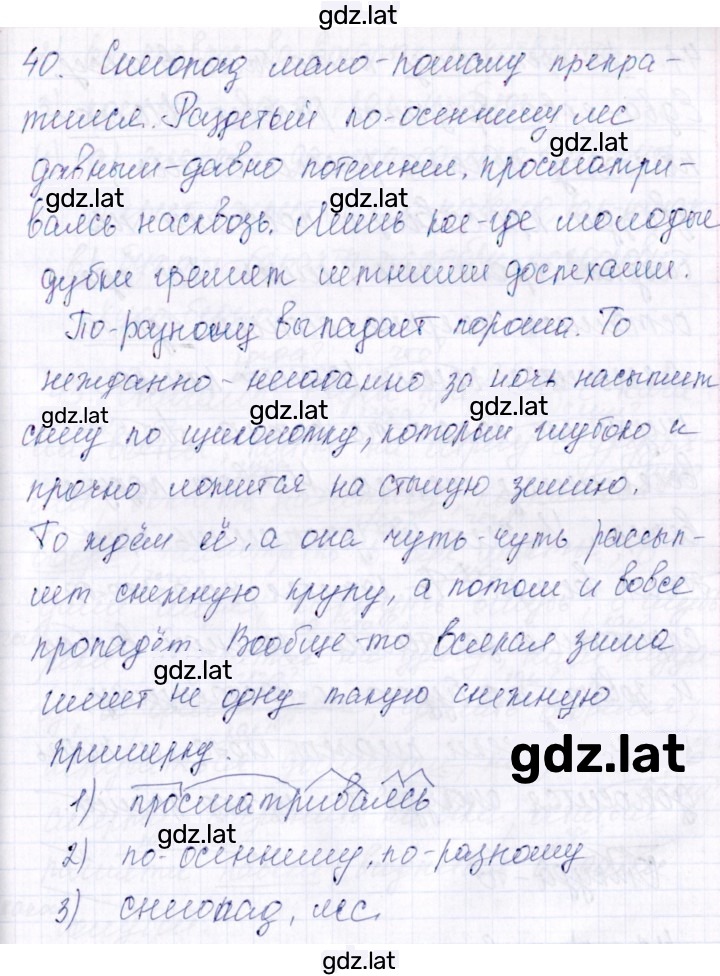 gdz.lat
40. Снегопад мало-помалу прекра-
тился. Раздетый по-осеннему лес
gdz.lat
давным-давно потемнел, просматри-
gdz.lat gdz.lat
ваясь насквозь. Лишь кое-где молодые
дубки гремят летними доспехами.
По-разному выпадает пороша. То
нежданно-негаданно за ночь насыплет
gdz.lat gdz.lat gdz.lat
снегу по щиколотку, который глубоко и
прочно ложится на стылую землю.
То ждём её, а она чуть-чуть рассып-
лет снежную крупу, а потом и вовсе
пропадёт. Вообще-то всякая зима
gdz.lat
имеет не одну такую снежную
примерку.
gdz.lat
1) просматриваясь
gdz.lat
2) по-осеннему, по-разному
3) снегопад, лес.
gdz.lat